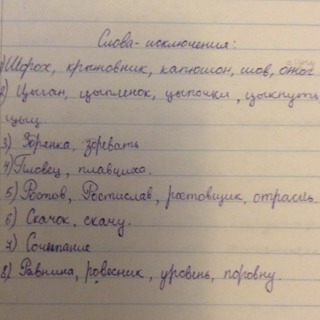 Слова-исключения:
1) Шорох, крыжовник, капюшон, шов, ожог
2) Цыган, цыпленок, цыпочки, цыкнуть,
цыц.
3) Зорянка, зоревать
4) Пловец, пловчиха.
5) Ростов, Ростислав, ростовщик, отрасль.
6) Скачок, скачу.
7) Сочетание
8) Равнина, ровесник, уровень, поровну.